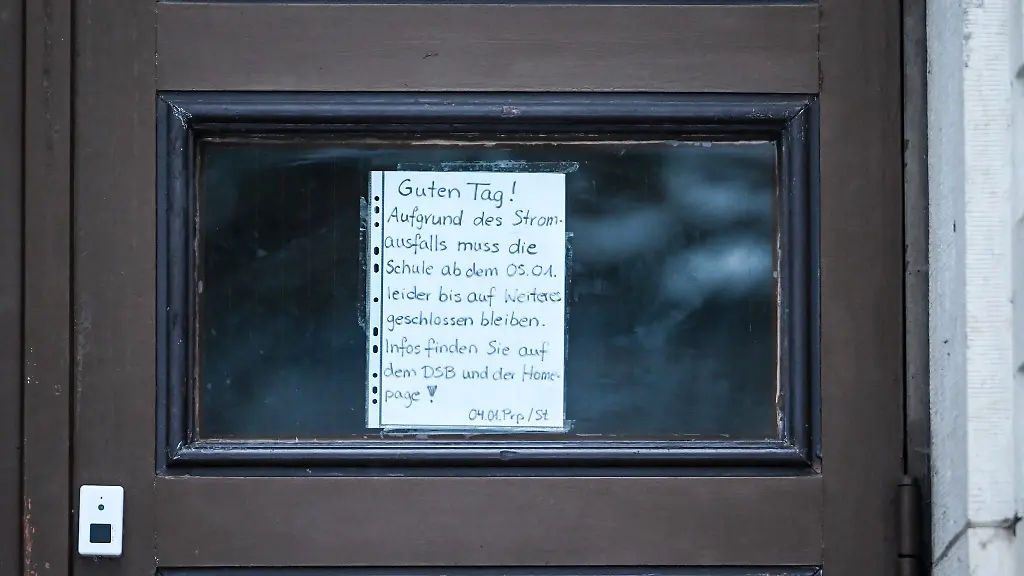 Guten Tag!
Aufgrund des Strom-
ausfalls muss die
Schule ab dem 05.01.
leider bis auf Weiteres
geschlossen bleiben.
Infos finden Sie auf
dem DSB und der Home-
page!
04.01. Prp/St